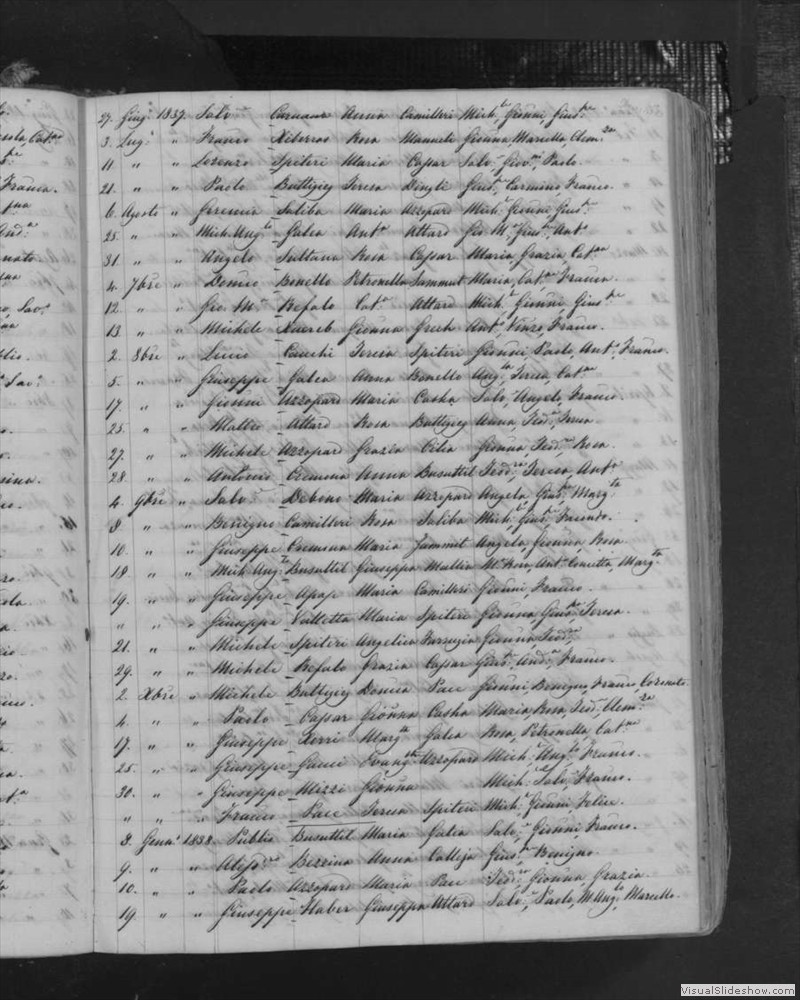 27. Giug.º 1837. Salv.r Caruana Anna Camilleri Mich.e, Gionni, Gius.pe
3. Lug.º " Franco Xiberras Rosa Manuele Gionna, Mariella, Clem.za
11. " " Lorenzo Spiteri Maria Cassar Salv.r, Giov.ni, Paolo.
21. " " Paolo Buttigieg Teresa Dingli Gius.e, Carmino, Franco.
6. Agosto " Saliba Maria Azzopard Mich.e, Gionni, Gius.e
25. " " Mich. Ang.lo Galea Ant.a Attard Gio. M.a, Gius.e, Ant.o
31. " " Angelo Sultana Rosa Cassar Maria, Grazia, Cat.na
4. 7bre " Domco Bonello Petronella Sammut Maria, Cat.na, Franca.
12. " " Gio. M.a Refalo Cat.a Attard Mich.e, Gionni, Gius.pe
13. " " Michele Xuereb Gionna Grech Ant.o, Vinzo, Franco.
2. 8bre " Lucio Cauchi Teresa Spiteri Gionni, Paolo, Ant.o, Franco.
5. " " Giuseppe Galea Anna Bonello Ang.la, Teresa, Cat.na
17. " " Gionni Azzopard Maria Casha Salv.r, Angelo, Franco
25. " " Matteo Attard Rosa Buttigieg Anna, Teod.a, Teresa
27. " " Michele Azzopard Grazia Cilia Gionna, Teod.ra, Rosa.
28. " " Antonio Cremona Anna Busuttil Teod.ra, Teresa, Ant.a
4. 9bre " Salv.r Debono Maria Azzopard Angela, Gius.a, Marg.ta
8. " " Benigno Camilleri Rosa Saliba Mich.e, Gius.e, Facondo.
10. " " Giuseppe Cremona Maria Zammit Angela, Gionna, Rosa
18. " " Mich. Ang.lo Busuttil Giuseppa Mallia M. Rosa, Ant.a, Concetta, Marg.ta
19. " " Giuseppe Apap Maria Camilleri Gionni, Franco.
" " " Giuseppe Valletta Maria Spiteri Gionna, Gius.a, Teresa.
21. " " Michele Spiteri Angelica Farrugia Gionna, Teod.ra
29. " " Michele Refalo Grazia Cassar Gius.e, And.a, Franco.
2. Xbre " Michele Buttigieg Domca Pace Gionni, Benigno, Franco, Coronato.
4. " " Paolo Cassar Gionna Casha Maria, Rosa, Teod.a, Clem.za
17. " " Giuseppe Xerri Marg.ta Galea Rosa, Petronella, Cat.na
25. " " Giuseppe Gauci Evang.ta Azzopard Mich. Ang.lo, Franco.
30. " " Giuseppe Mizzi Gionna Mich.e, Salv.r, Franco.
" " " Franco Pace Teresa Spiteri Mich.e, Gionni, Felice.
3. Genn.º 1838. Publio Busuttil Maria Galea Salv.r, Gionni, Franco.
9. " " Bezzina Anna Calleja Gius.pe, Benigno.
10. " " Paolo Azzopard Maria Pace Teod.ra, Gionna, Grazia.
19. " " Giuseppe Haber Giuseppa Attard Salv.r, Paolo, M. Ang.lo, Marcello.
VisualSlideshow.com